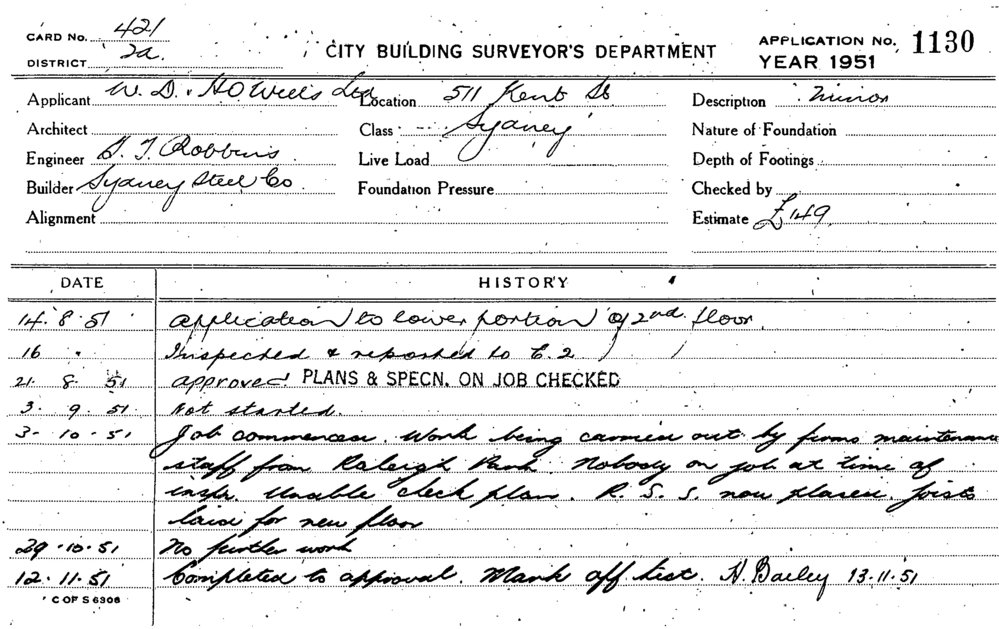 CARD No. 421
DISTRICT 2a
CITY BUILDING SURVEYOR'S DEPARTMENT
APPLICATION No. 1130
YEAR 1951
Applicant W. D. & H O Wills Ltd Location 511 Kent St Description Minor
Architect Class Sydney Nature of Foundation
Engineer Robbins Live Load Depth of Footings
Builder Sydney Steel Co Foundation Pressure Checked by
Alignment Estimate £149
DATE HISTORY
14. 8. 51 application to lower portion of 2nd floor.
16 " Inspected & reported to C. 2
21. 8. 51 approved PLANS & SPECN. ON JOB CHECKED
3. 9. 51 Not started.
3- 10. 51 Job commenced. Work being carried out by firms maintenance
staff from Raleigh Park. Nobody on job at time of
inspn. Unable check plan. R. S. S. now placed. Joists
laid for new floor
29. 10. 51 No further work
12. 11. 51 Completed to approval. Mark off list. H. Bailey 13.11.51
C OF S 6306